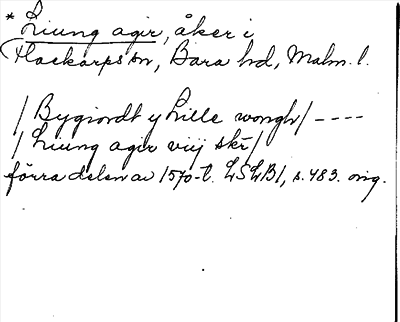 * Liung agir, åker i
Flackarps sn, Bara hd, Malm. l.
/ Bygiordt y Lille wongh / ----
/ Liung agir viij skr /
förra delen av 1570-t. LSLB1, s. 483. orig.